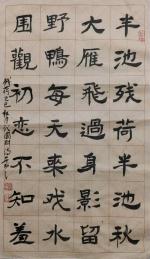 半池残荷半池秋
大雁飛過身影留
野鴨每天来戏水
围觀初恋不知羞